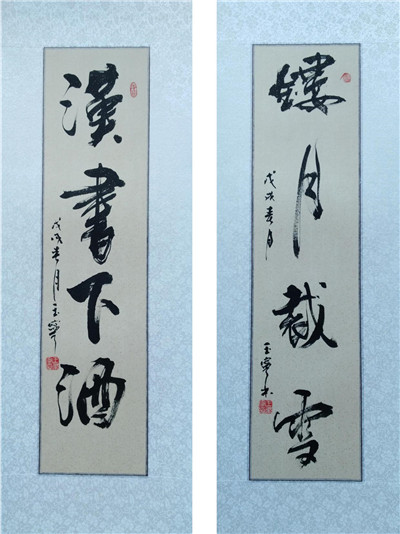 漢書下酒
戊戌春月玉寧
鏤月裁雪
戊戌春月
玉寧书